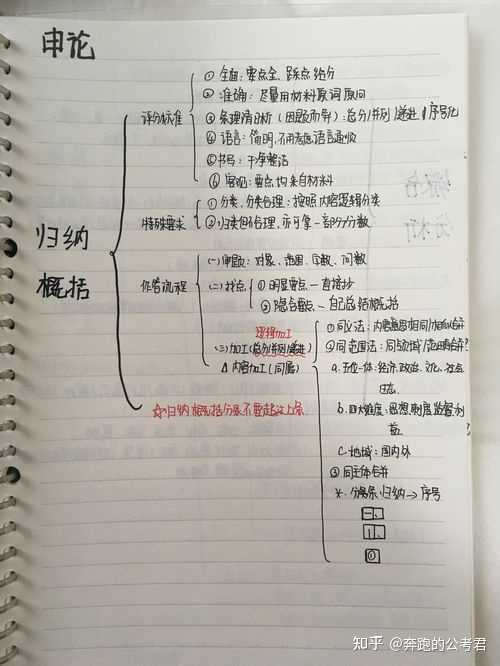 申论
归纳
概括
评分标准
① 全面:要点全、踩点给分
② 准确:尽量用材料原词原句
③ 条理清晰(因题而异):总分/并列/递进 序号化
④ 语言:简明,不用考虑语言连贯
⑤ 书写:干净整洁
⑥ 客观:要点均来自材料
特殊要求
① 分类、分类合理:按照内容逻辑分类
② 归类但合理,亦可拿一部分分数
作答流程
(一)审题:对象、范围、字数、问数
(二)找点
① 明显要点—直接抄
② 隐含要点—自己总结概括
逻辑加工
(三)加工(总分并列递进)
△ 内容加工(同属)
① 同义法:内容意思相同/相似合并
② 同范围法:同领域/范围合并
a. 五位一体:经济、政治、文化、社会
生态
b. 四大角度:思想、制度、监督、利
益
C. 地域:国内外
③ 同主体合并
*. 分条归纳→序号
一、
1、
①
☆归纳概括分条不要超过七条
知乎 @奔跑的公考君